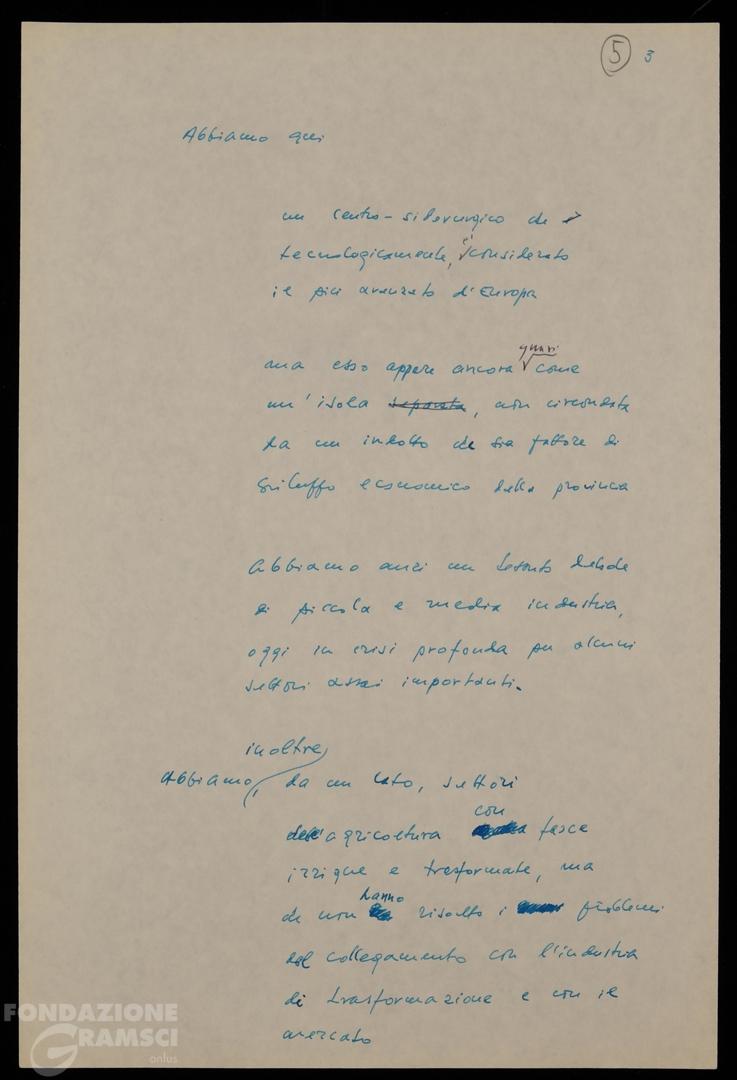 5 3
Abbiamo qui
un centro-siderurgico che è
tecnologicamente, è considerato
il più avanzato d'Europa
ma esso appare ancora quasi come
un'isola separata, non circondata
da un indotto che sia fattore di
sviluppo economico della provincia
Abbiamo anzi un tessuto debole
di piccola e media industria,
oggi in crisi profonda per alcuni
settori assai importanti.
Abbiamo, inoltre, da un lato, settori
dell'agricoltura con fasce
irrigue e trasformate, ma
che non hanno risolto i problemi
del collegamento con l'industria
di trasformazione e con il
mercato
FONDAZIONE
GRAMSCI
onlus